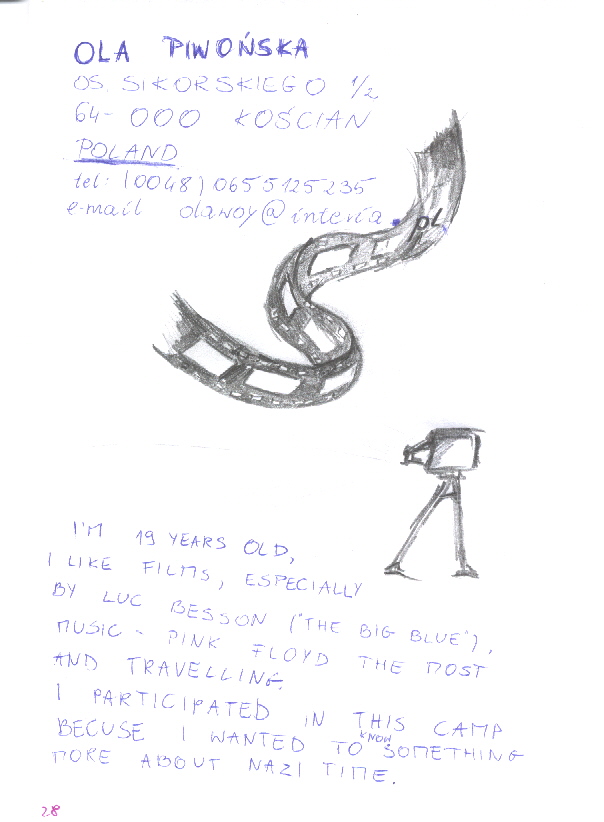 OLA PIWOŃSKA
OS. SIKORSKIEGO 1/2
64-000 KOŚCIAN
POLAND
tel: (0048) 0655125235
e-mail olawoy@interia.pl
I'M 19 YEARS OLD,
I LIKE FILMS, ESPECIALLY
BY LUC BESSON ("THE BIG BLUE"),
MUSIC - PINK FLOYD THE MOST
AND TRAVELLING.
I PARTICIPATED IN THIS CAMP
BECUSE I WANTED TO KNOW SOMETHING
MORE ABOUT NAZI TIME.
28